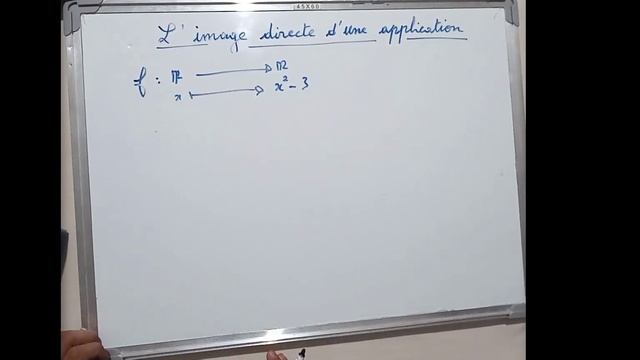 45X60
L'image directe d'une application
f : ℝ ⟶ ℝ
x ⟼ x² - 3